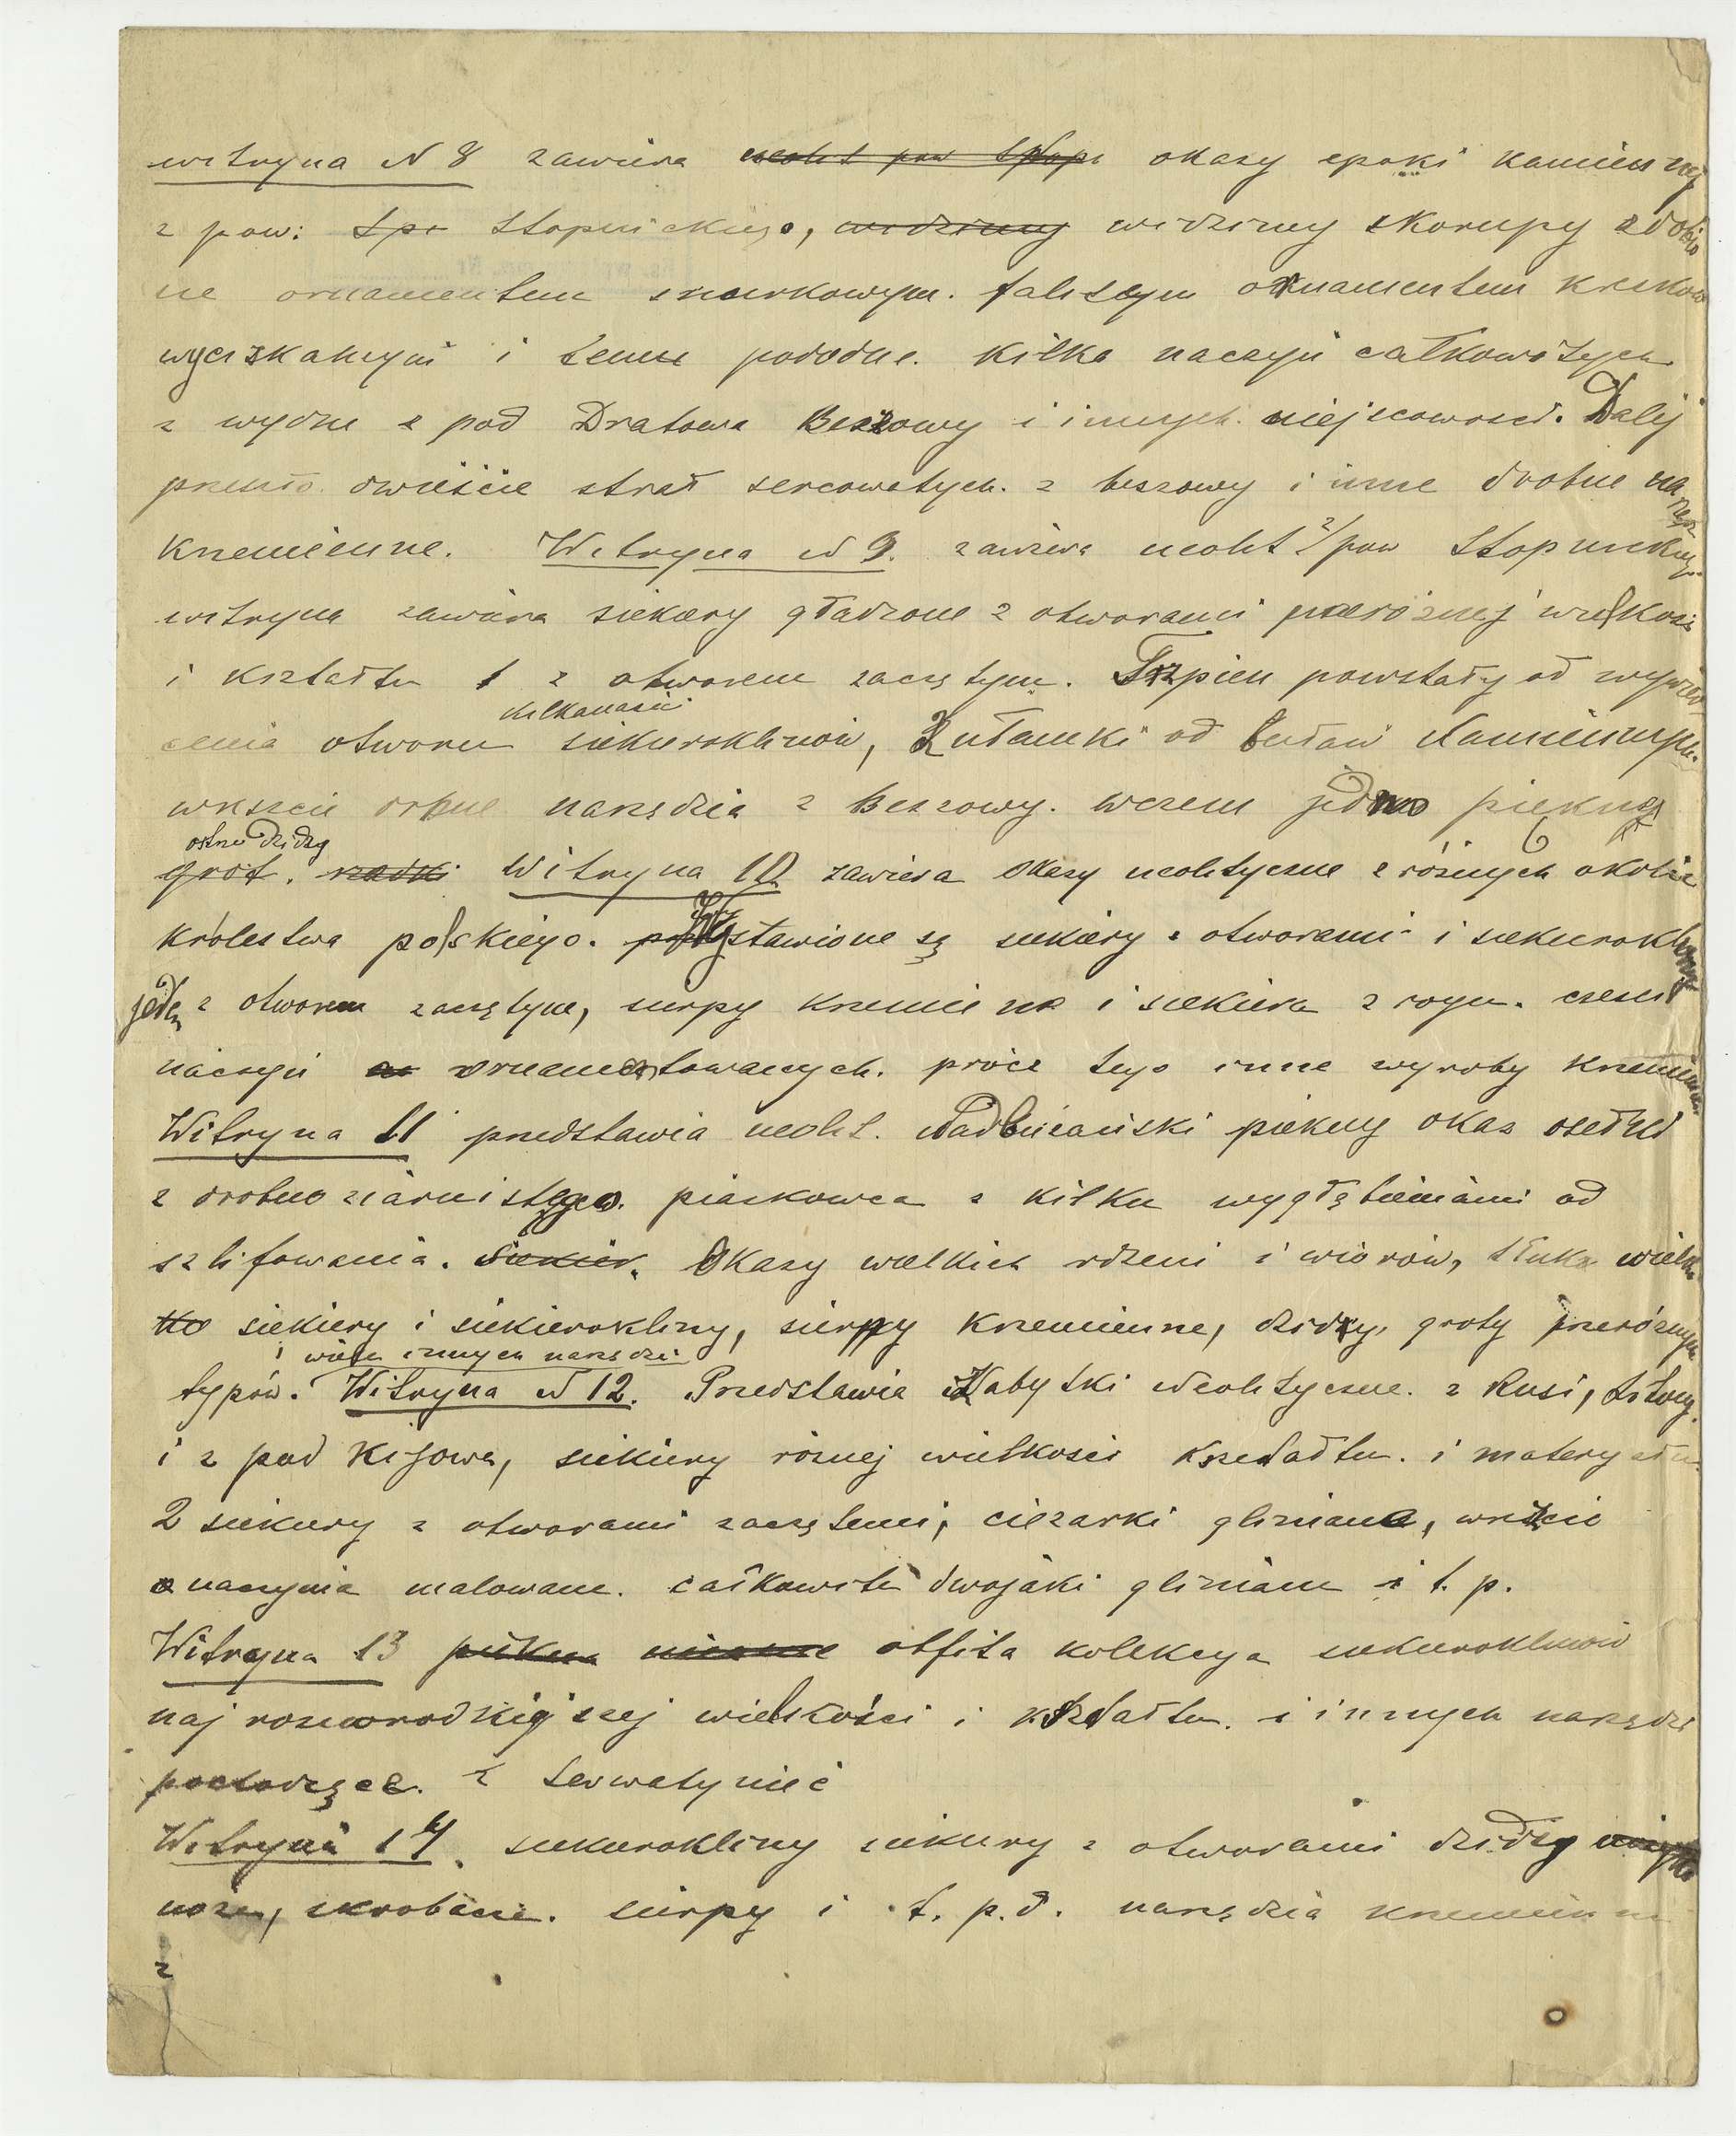 witryna N 8 zawiera neolit pow Stopn okazy epoki kamiennej
z pow: Sto Stopnickiego, widzimy widzimy skorupy zdobio
ne ornamentem sznurkowym. falistym ornamentem kreskow
wyciskanym i temu podobne. kilka naczyń całkowitych
z wydm z pod Dratowa Beszowy i innych miejscowości. Dalej
przeszło dwieście strzał sercowatych. z beszowy i inne drobne narzę
krzemienne. Witryna N 9. zawiera neolit z/pow Stopnickieg.
witryna zawiera siekiery gładzone z otworami przeróżnej wielkości
i kształtu 1 z otworem zaczętym. Trzpień powstały od wywier
kilkanaście
cenia otworu siekieroklinów, Zułamki od buław Kamiennych.
wreszcie drobne narzędzia z Beszowy. wczem jedno piękny
ostrze dzidzy
grot. Witryna 10 zawiera okazy neolityczne z różnych okolic
królestwa polskiego. Wystawione są siekiery z otworami i siekierokliny
jeden z otworem zaczętym, sierpy krzemienne i siekiera z rogu. cześci
naczyń ornamentowanych. prócz tego inne wyroby krzemien
Witryna 11 przedstawia neolit. Nadbużański piękny okaz osełki
z drobno ziarnistego piaskowca z kilku wygłębieniami od
szlifowania. Siekier. Okazy wielkich rdzeni i wiórów, wielka
ko siekiery i siekierokliny, sierpy krzemienne, dzidzy, groty przeróżnych
i wiele innych narzędzi
typów. Witryna N 12. Przedstawia Zabytki neolityczne. z Rusi, Litwy.
i z pod Kijowa, siekiery róznej wielkości kształtu. i materyału.
2 siekiery z otworami zaczętemi, ciezarki gliniane, wreszcie
naczynia malowane. całkowite dwojaki gliniane i t. p.
Witryna 13 piękna obfita kolekcya siekieroklinów
naj rozmorodkiejszej wielkości i kształtu. i innych narzędzi
pochodzące. z
Witryna 14. siekierokliny siekiery z otworami dzidzy
noże, skrobacze. sierpy i t. p. d. narzędzia krzemienne
z